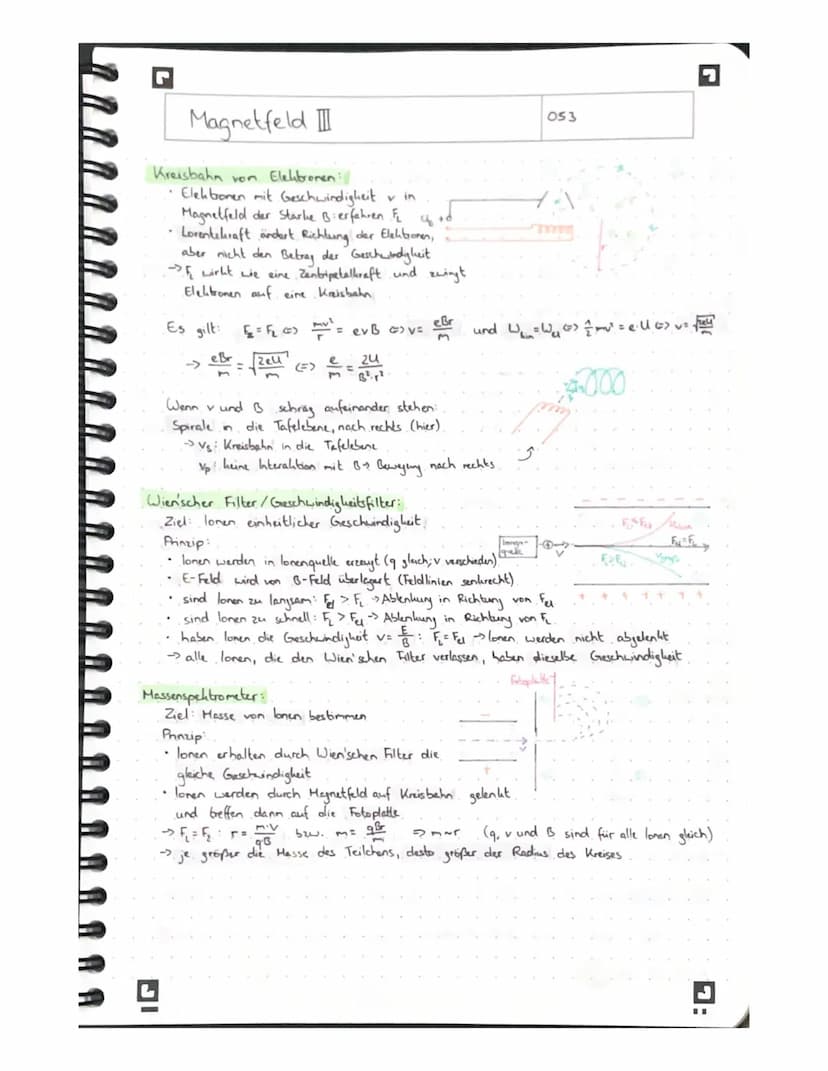 Magnetfeld III
053
Kreisbahn von Elektronen:
· Elektronen mit Geschwindigkeit v in
Magnetfeld der Stärke B erfahren F_L
· Lorentzkraft ändert Richtung der Elektronen,
aber nicht den Betrag der Geschwindigkeit
→ F_L wirkt wie eine Zentripetalkraft und zwingt
Elektronen auf eine Kreisbahn
Es gilt: F_Z = F_L <=> mv²/r = evB <=> v = eBr/m und W_kin = W_el <=> 1/2 mv² = e·U <=> v = √(2eU/m)
→ eBr/m = √(2eU/m) <=> e/m = 2U/B²·r²
Wenn v und B schräg aufeinander stehen:
Spirale in die Tafelebene, nach rechts (hier)
→ v_s: Kreisbahn in die Tafelebene
v_p: keine Interaktion mit B → Bewegung nach rechts
Wien'scher Filter/Geschwindigkeitsfilter:
Ziel: Ionen einheitlicher Geschwindigkeit
Prinzip:
Ionen-
quelle
+ v
F_el = F_L
· Ionen werden in Ionenquelle erzeugt (q gleich; v verschieden)
· E-Feld wird von B-Feld überlagert (Feldlinien senkrecht)
· sind Ionen zu langsam: F_el > F_L → Ablenkung in Richtung von F_el
· sind Ionen zu schnell: F_L > F_el → Ablenkung in Richtung von F_L
· haben Ionen die Geschwindigkeit v = E/B : F_L = F_el → Ionen werden nicht abgelenkt
→ alle Ionen, die den Wien'schen Filter verlassen, haben dieselbe Geschwindigkeit
Massenspektrometer:
Fotoplatte
Ziel: Masse von Ionen bestimmen
Prinzip:
· Ionen erhalten durch Wien'schen Filter die
gleiche Geschwindigkeit
· Ionen werden durch Magnetfeld auf Kreisbahn gelenkt
und treffen dann auf die Fotoplatte
→ F_L = F_Z : r = m·v/qB bzw. m = qBr/v => m~r (q, v und B sind für alle Ionen gleich)
→ je größer die Masse des Teilchens, desto größer der Radius des Kreises